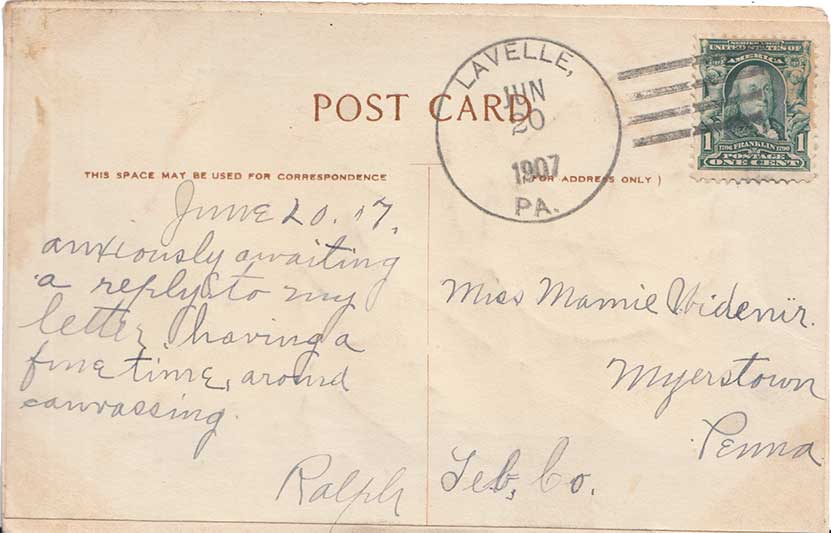 POST CARD
THIS SPACE MAY BE USED FOR CORRESPONDENCE
(FOR ADDRESS ONLY)
LAVELLE,
JUN
20
1907
PA.
SERIES 1902
UNITED STATES OF
AMERICA
1 1
1706 FRANKLIN 1790
POSTAGE
ONE CENT
June 20. 07.
anxiously awaiting
a reply to my
letter, having a
fine time, around
canvassing.
Ralph
Miss Mamie Widenir.
Myerstown
Penna
Leb. Co.